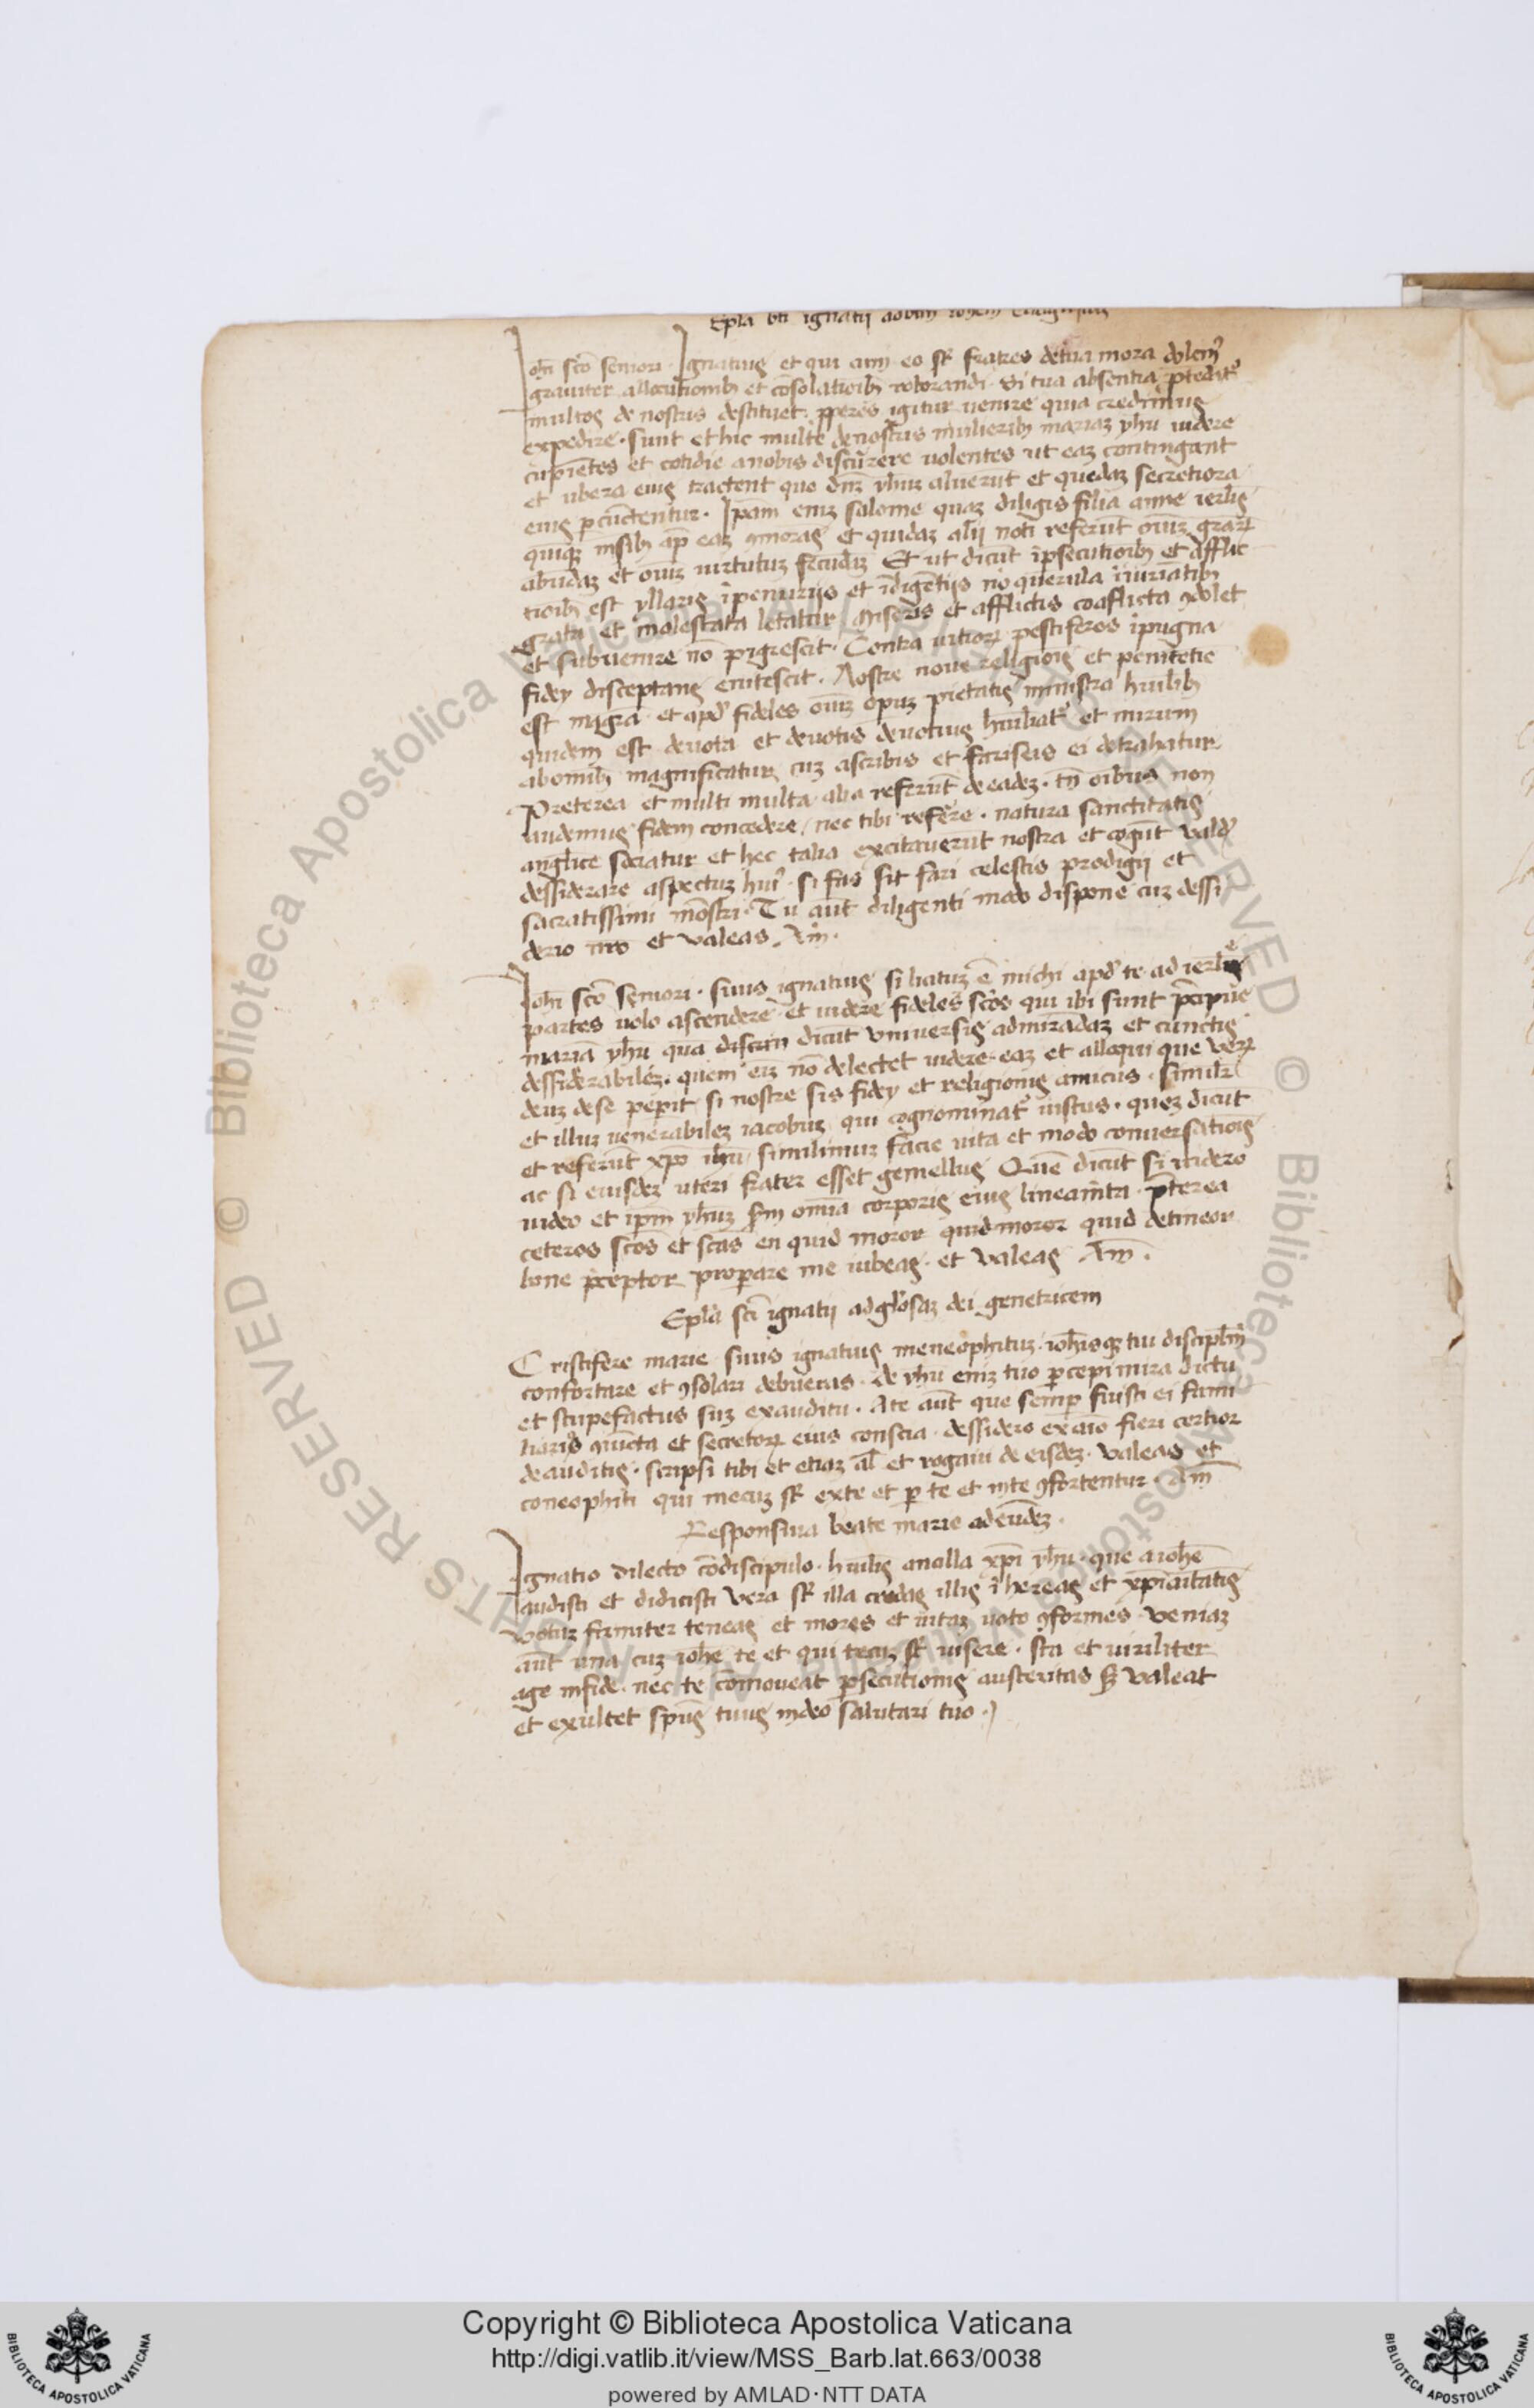 Epla bti ignatij ad btm iohem euagelistaz
Ioh̄i scō seniori · Ignatius et qui cum eo st̄ fratres de tua mora dolem᷒
grauiter allocutionib᷒ et cōsolatiōib᷒ roborandi · Si tua absentia p̄tēdit᷒
multos de nostris destituet · pperes igitur uenire quia credimus
expedire · sunt et hic multe de nostris mulierib᷒ mariaz yhu uidere
cupiētes et cotidie a nobis discurrere uolentes ut eaz contingant
et ubera eius tractent que dn̄z yhuz aluerūt et quedaz secretiora
eius p̄cūctentur · Ip̄am eniz salome quaz diligis filia anne ierlis̄
quiqz mēsib᷒ ap̄ eaz ꝯmorās et quidaz alij noti referūt oīuz grar̄
abūdaz et oīuz uirtutuz fecūdaz Et ut dicūt ī psecutioib᷒ et afflic
tioīb᷒ est yllaris ī penurijs et īdigētijs nō querula īiuriātib᷒
grata et molestata letatur miseris et afflictis coaflicta ꝯdolet
et subuenire nō pigrescit · Contra uitioꝝ pestiferos īpugna
fidey disceptans enitescit · Nostre noue religiōis et penitētie
est maḡra · et apd᷒ fideles oīuz opuz pietatis ministra huilib᷒
quidem est deuota et deuotis deuotius huīliat᷒ et mirum
ab omīb᷒ magnificatur cuz a scribis et fariseis ei detrahatur
Preterea et multi multa alia referūt de eadez · tn̄ oībus non
audemus fidem concedere / nec tibi referre · natura sanctitatis
anglice sociatur et hec talia excitauerūt nostra et cogūt vald᷒
dessiderare aspectuz hui᷒ · si fas sit fari celestis prodigij et
sacratissimi mōstri · Tu aūt diligenti modo dispone cuz dessi
derio nrō et valeas · Am̄ ·
Ioh̄i scō seniori · suus ignatius si licituz ē michi apd᷒ te ad ierlm̄e
partes uolo ascendere et uidere fideles scōs qui ibi sunt p̄cipue
mariā yhu qua discūn dicūt vniuersis admirādaz et cunctis
dessiderabilez · quem eīz nō delectet uidere eaz et alloqui que veꝝ
deuz de se pepit si nostre sis fidey et religionis amicus · similr̄
et illuz uenerabilez iacobuz qui cognominat᷒ iustus · quez dicūt
et referūt xp̄o ih̄u similimuz facie uita et modo conuersatiōis
ac si eiusdez uteri frater esset gemellus Quē dicūt si uidero
uideo et ip̄m yhuz s̄m omīa corporis eius lineam̄ta · p̄terea
ceteros scōs et scās en quid moror quid moror quid detineor
bone p̄ceptor properare me iubeas · et valeas Am̄ ·
Eplā sci ignatij ad gl̄osaz dei genetricem
Cristifere marie suus ignatius me neophituz · ioh̄isqz tui discipl̄m
confortare et ꝯsolari debueras · de yhu eniz tuo p̄cepi mira dictu
et stupefactus suz ex auditu · A te aūt que semp̄ fuisti ei fami
liaris ꝯiūcta et secretoꝝ eius conscia · dessidero ex aīo fieri certior
de auditis · scripsi tibi et etiaz al̄ et rogaui de eisdez · valeas et
coneophiti qui mecuz st̄ ex te et p̄ te et in te ꝯfortentur · Am̄
Responsiua beate marie ad eūdez ·
Ignatio dilecto cōdiscipulo · huilis ancilla xp̄i yhu · que a ioh̄e
audisti et didicisti vera st̄ illa credas illis īhereas et xp̄ianitatis
votuz firmiter teneas et mores et uitaz uoto ꝯformes · veniaz
aūt una cuz ioh̄e te et qui tecuz st̄ uisere · sta et uiriliter
age in fide · nec te cōmoueat p̄secutionis austeritas sz valeat
et exultet sp̄us tuus in deo salutari tuo ·
© Biblioteca Apostolica Vaticana ALL RIGHTS RESERVED © Biblioteca Apostolica Vaticana ALL RIGHTS RESERVED
Copyright © Biblioteca Apostolica Vaticana
http://digi.vatlib.it/view/MSS_Barb.lat.663/0038
powered by AMLAD·NTT DATA
BIBLIOTECA APOSTOLICA VATICANA
BIBLIOTECA APOSTOLICA VATICANA